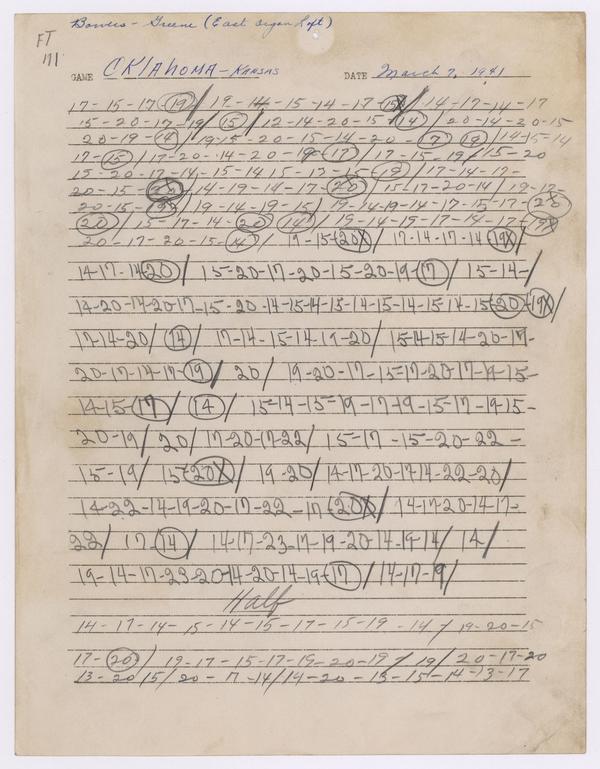 Bowers - Greene (East Organ Loft)
FT
171
GAME OKlAHOMA - KANSAS DATE March 7, 1941
17-15-17-19/ 19-14-15-14-17-15X/ 14-17-14-17
15-20-17-19/ 15/ 12-14-20-15-14/ 20-14-20-15
20-19-14/ 19-15-20-15-14-20-17/ 19/ 14-15-14
17-15/ 17-20-14-20-19-17/ 17-15-19/ 15-20
15-20-17-14-15-14-15-13-15-19/ 17-14-17-
20-15-20/ 14-19-14-17-20/ 15/ 17-20-14/ 19-17-
20-15-20/ 19-14-19-15/ 19-14-19-14-17-15-17-20
20/ 15-17-14-20/ 14/ 19-14-15-17-14-17-19X
20-17-20-15-14/ 19-15-20X/ 17-14-17-14-19X/
14-17-14-20/ 15-20-17-20-15-20-19-17/ 15-14-/
14-20-14-20-17-15-20-14-15-14-15-14-15-14-15-14-15-20-19X/
17-14-20/ 14/ 17-14-15-14-19-20/ 15-14-15-14-20-19-
20-17-14-17-19/ 20/ 19-20-17-15-17-20-17-19-15-
14-15-17/ 14/ 15-14-15-19-17-19-15-17-19-15-
20-19/ 20/ 17-20-17-22/ 15-17-15-20-22-
15-19/ 15-20X/ 19-20/ 14-17-20-17-14-22-20/
14-22-14-19-20-17-22-17-20X/ 14-17-20-14-17-
22/ 17-14/ 14-17-23-17-19-20-14-19-14/ 14/
19-14-17-23-20-14-20-14-19-17/ 14-17-19/
Half
14-17-14-15-14-15-17-15-19-14/ 19-20-15
17-20/ 19-17-15-17-19-20-19/ 19/ 20-17-20
13-20/15/20-17-14/14-20-13-15-14-13-17